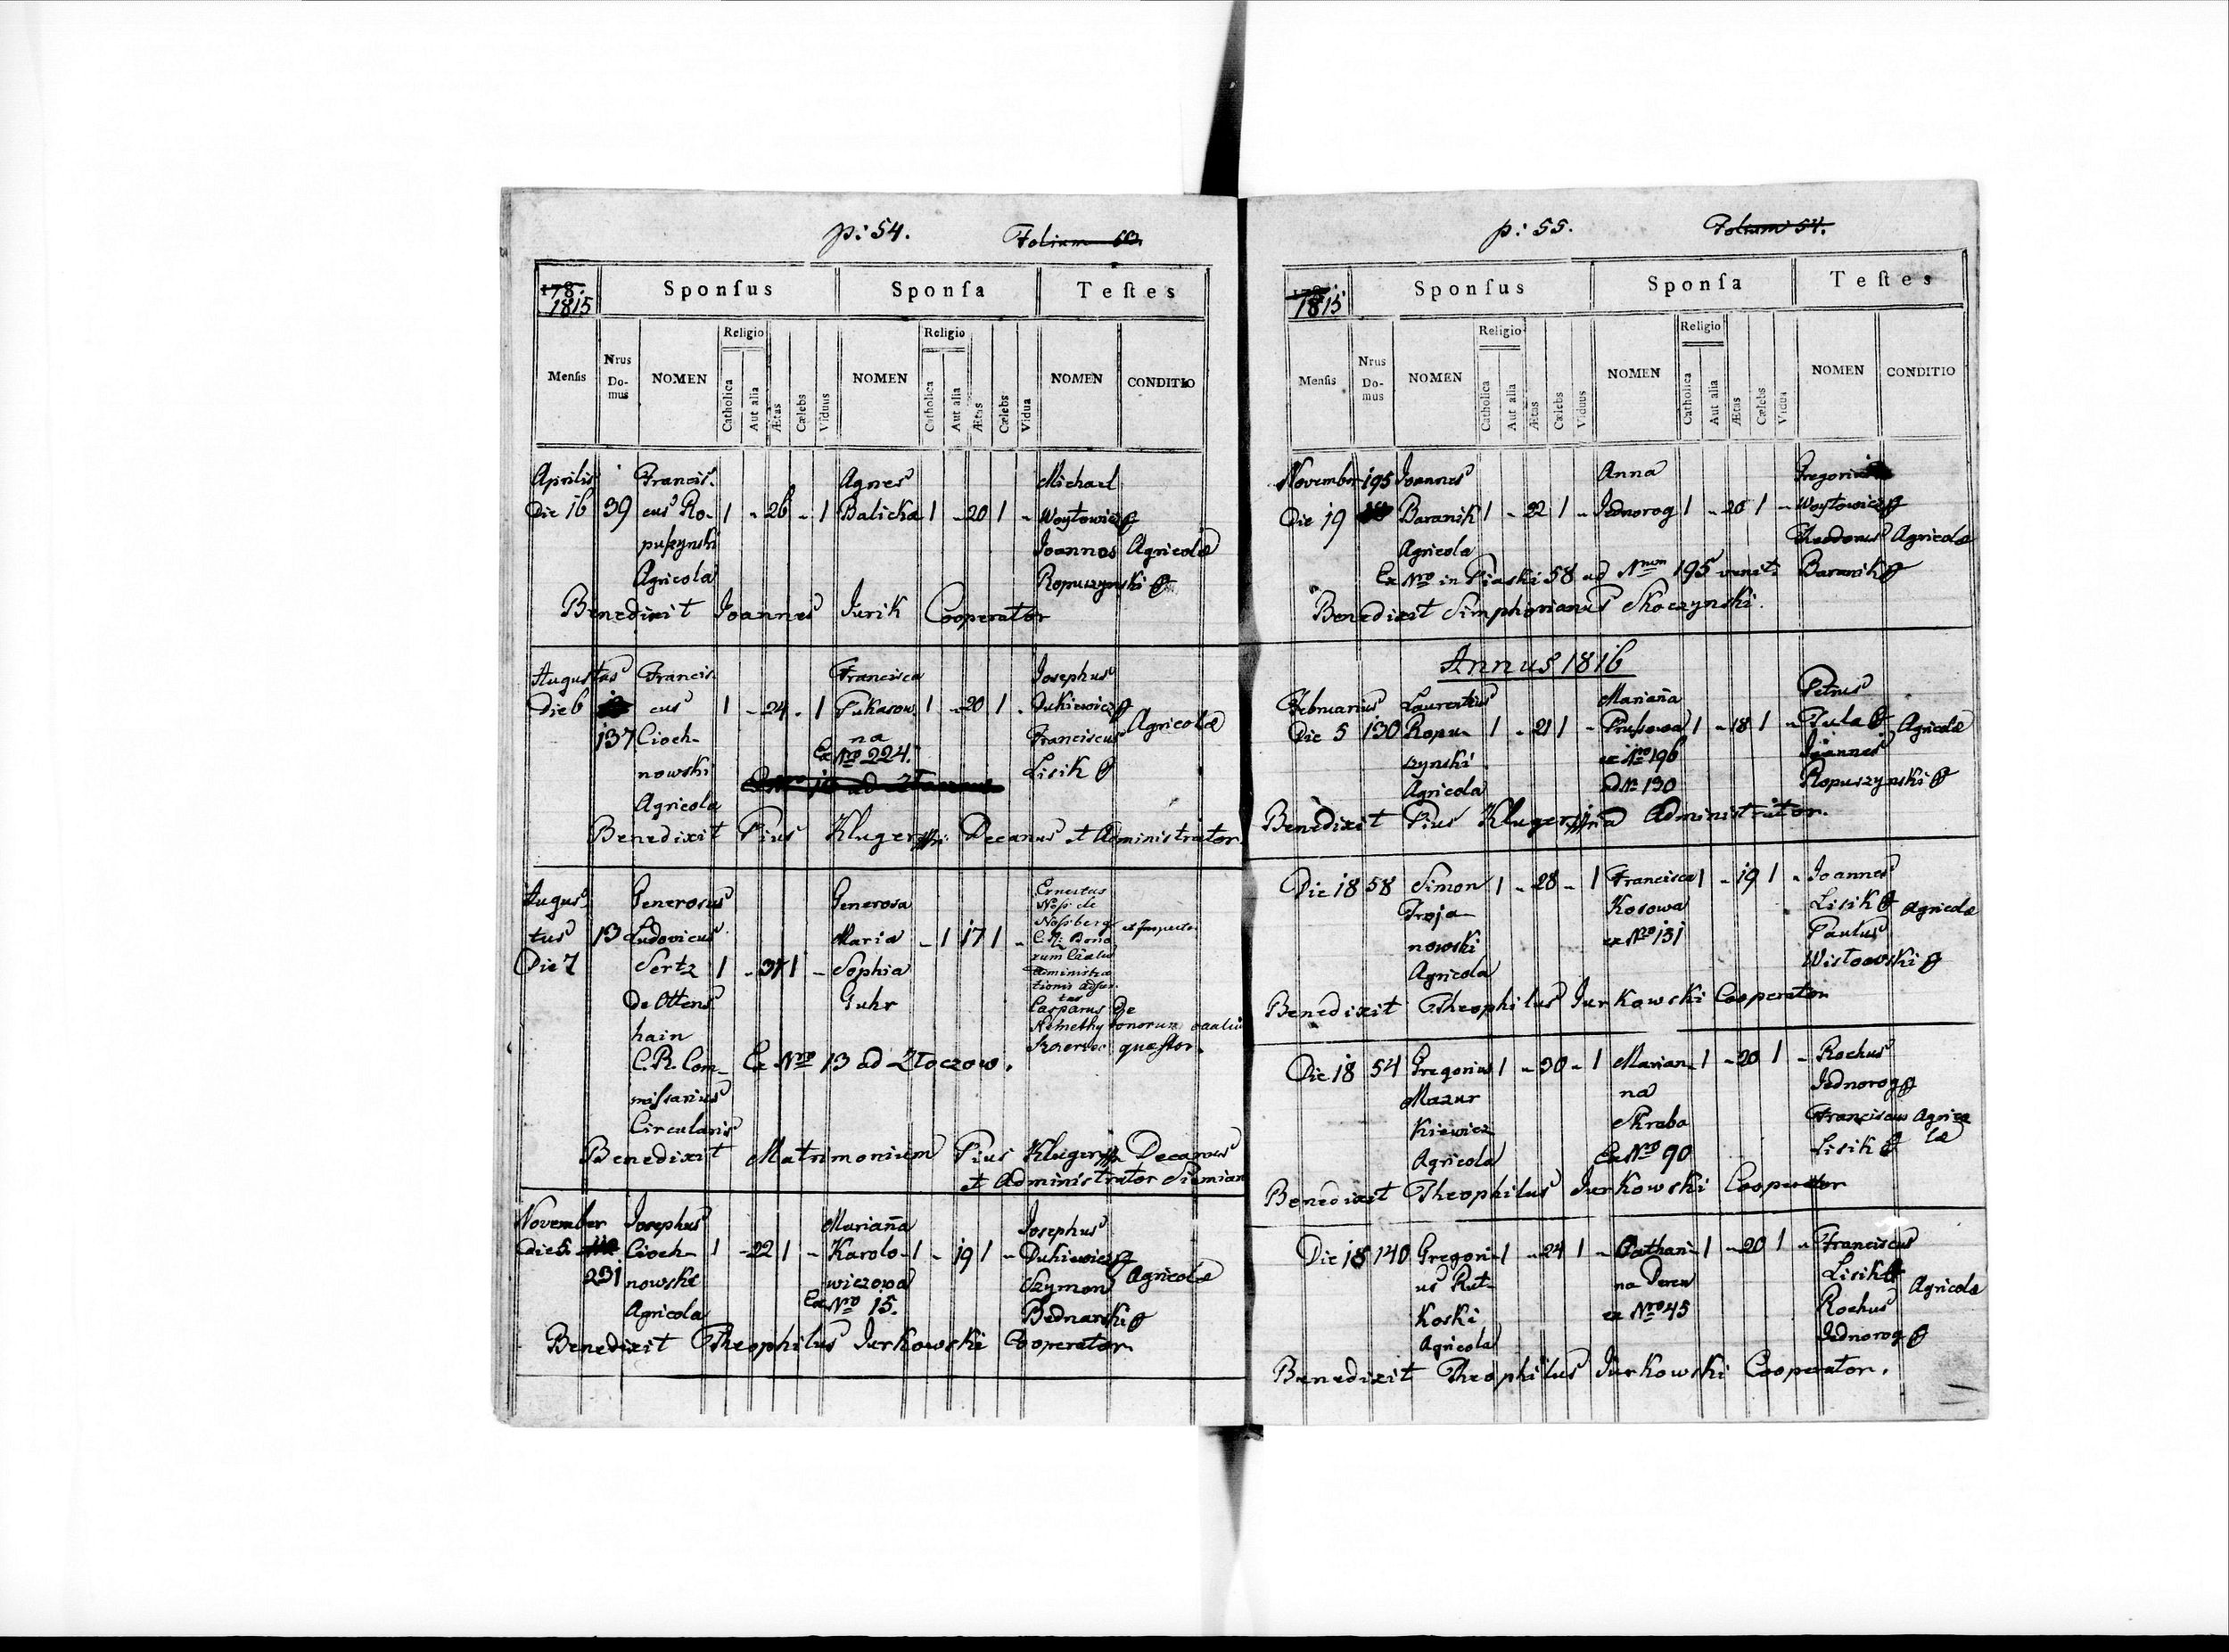 p: 54. Folium
178.
1815
Sponſus Sponſa Teſtes
Menſis Nrus Do- mus NOMEN Religio Catholica Aut alia Ætas Cælebs Viduus NOMEN Religio Catholica Aut alia Ætas Cælebs Vidua NOMEN CONDITIO
Aprilis Francis- Agnes Michael
Die 16 39 cus Ro- 1 - 26 - 1 Balicka 1 - 20 1 - Woytowicz
puszynski Joannes Agricolæ
Agricola Ropuszynski
Benedixit Joannes Jurik Cooperator
Augustus Francis- Francisca Josephus
Die 6 cus 1 - 24 - 1 Pukasow- 1 - 20 1 - Dukiewicz
137 Cioch- na Franciscus Agricolæ
nowski Ex Nro 224. Lisik
Agricola
Benedixit Pius Kluger Decanus et Administrator
Augus- Generosus Generosa Ernestus
tus 13 Ludovicus Maria - 1 17 1 - Nossberg
Die 7 Sertz 1 - 37 1 - Sophia
de Ottens Guhr
hain Casparus De
C. R. Com- Ex Nro 13 ad Złoczow. quæstor.
missarius
Circularis
Benedixit Matrimonium Pius Kluger Decanus
et Administrator Siemian
November Josephus Marianna Josephus
Die 5 Cioch- 1 - 22 1 - Karolo- 1 - 19 1 - Dukiewicz
231 nowski wiczowa Szymon Agricolæ
Agricola Ex Nro 15. Bednarski
Benedixit Theophilus Jurkowski Cooperator
p: 55. Folium 54.
1815
Sponſus Sponſa Teſtes
Menſis Nrus Do- mus NOMEN Religio Catholica Aut alia Ætas Cælebs Viduus NOMEN Religio Catholica Aut alia Ætas Cælebs Vidua NOMEN CONDITIO
November 195 Joannes Anna Gregorius
Die 19 Baranik 1 - 22 1 - Jednorog 1 - 20 1 - Woytowicz
Agricola Theodorus Agricolæ
Ex Nro in Piaski 58 ad Nrum 195 venit. Baranik
Benedixit Simphorianus Skoczynski.
Annus 1816
Februarius Laurentius Marianna Petrus
Die 5 130 Ropu- 1 - 21 1 - Prussowa 1 - 18 1 - Pula Agricolæ
szynski ex Nro 196 Joannes
Agricola ad Nr 130 Ropuszynski
Benedixit Pius Kluger Administrator.
Die 18 58 Simon 1 - 28 - 1 Francisca 1 - 19 1 - Joannes
Troja- Kosowa Lisik Agricolæ
nowski ex Nro 131 Paulus
Agricola Wistowski
Benedixit Theophilus Jurkowski Cooperator
Die 18 54 Gregorius 1 - 30 - 1 Marian- 1 - 20 1 - Rochus
Mazur na Jednorog
kiewicz Skraba Franciscus Agrico
Agricola Ex Nro 90 Lisik læ
Benedixit Theophilus Jurkowski Cooperator
Die 18 140 Gregori- 1 - 24 1 - Cathari- 1 - 20 1 - Franciscus
us Rut- na Deren Lisik Agricolæ
koski ex Nro 45 Rochus
Agricola Jednorog
Benedixit Theophilus Jurkowski Cooperator.